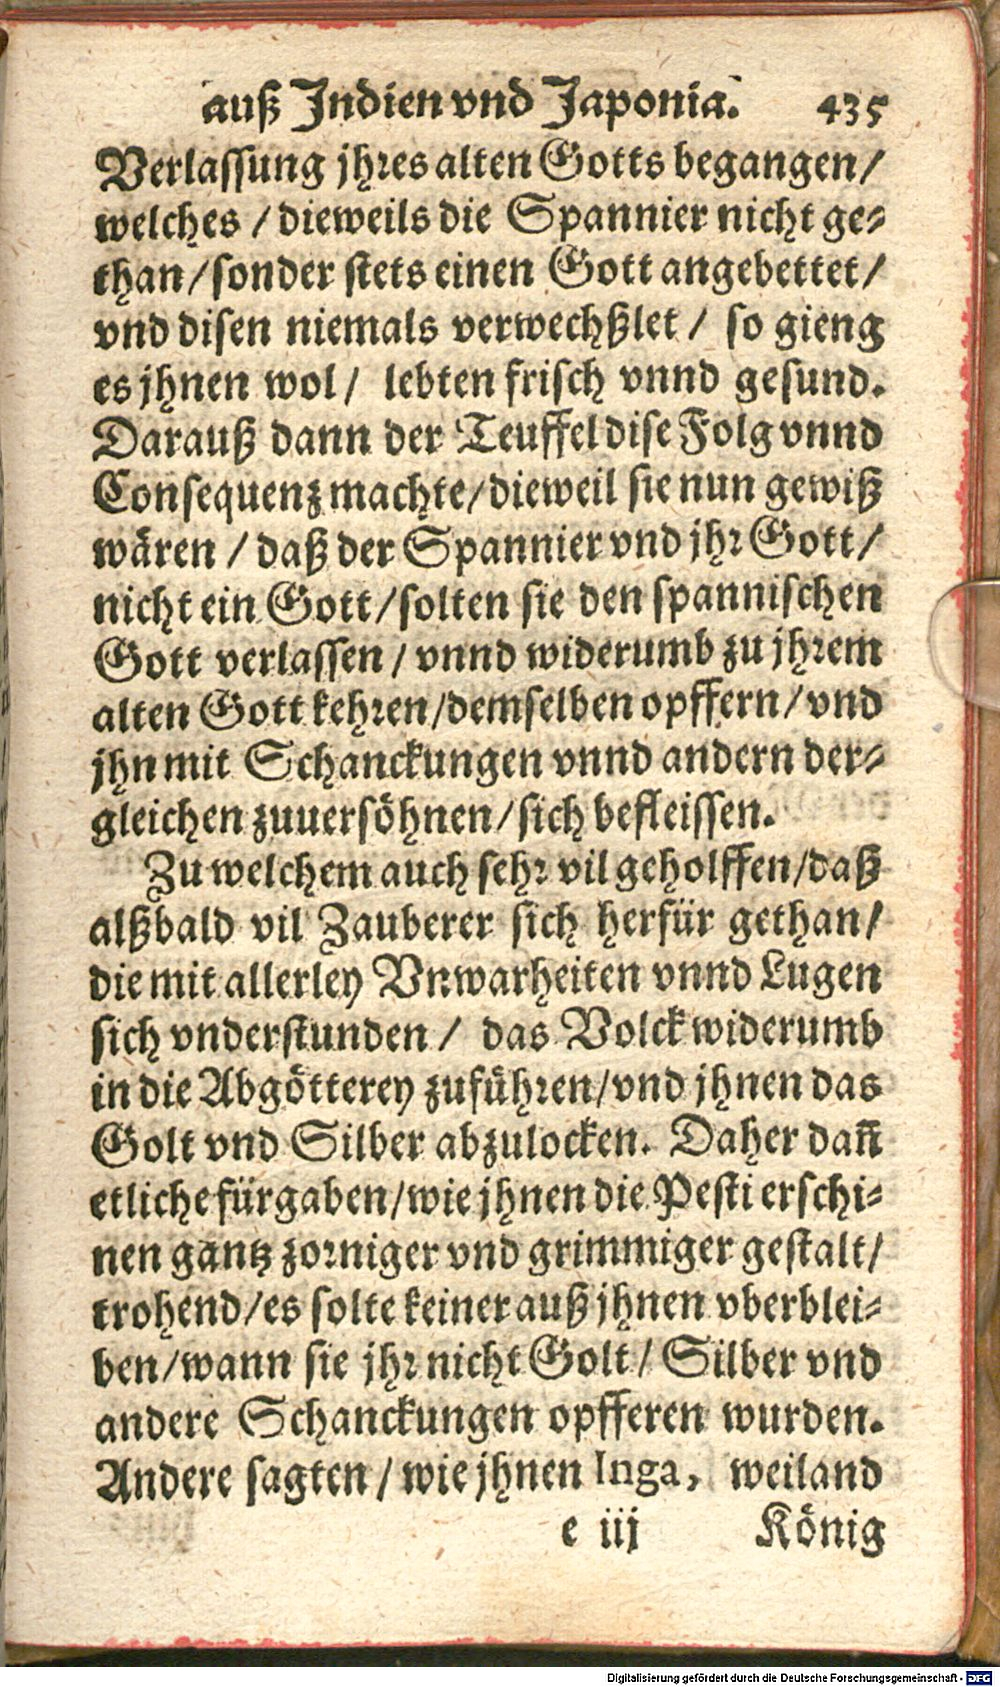 auß Jndien vnd Japonia. 435
Verlassung jhres alten Gotts begangen/
welches / dieweils die Spannier nicht ge-
than/sonder stets einen Gott angebettet/
vnd disen niemals verwechßlet / so gieng
es jhnen wol / lebten frisch vnnd gesund.
Darauß dann der Teuffel dise Folg vnnd
Consequenz machte/dieweil sie nun gewiß
wären / daß der Spannier vnd jhr Gott/
nicht ein Gott/solten sie den spannischen
Gott verlassen / vnnd widerumb zu jhrem
alten Gott kehren/demselben opffern/vnd
jhn mit Schanckungen vnnd andern der-
gleichen zuuersöhnen/sich befleissen.
Zu welchem auch sehr vil geholffen/daß
alßbald vil Zauberer sich herfür gethan/
die mit allerley Vnwarheiten vnnd Lugen
sich vnderstunden / das Volck widerumb
in die Abgötterey zuführen/vnd jhnen das
Golt vnd Silber abzulocken. Daher dañ
etliche fürgaben/wie jhnen die Pesti erschi-
nen gantz zorniger vnd grimmiger gestalt/
trohend/es solte keiner auß jhnen vberblei-
ben/wann sie jhr nicht Golt / Silber vnd
andere Schanckungen opfferen wurden.
Andere sagten / wie jhnen Inga, weiland
e iij König
Digitalisierung gefördert durch die Deutsche Forschungsgemeinschaft - DFG